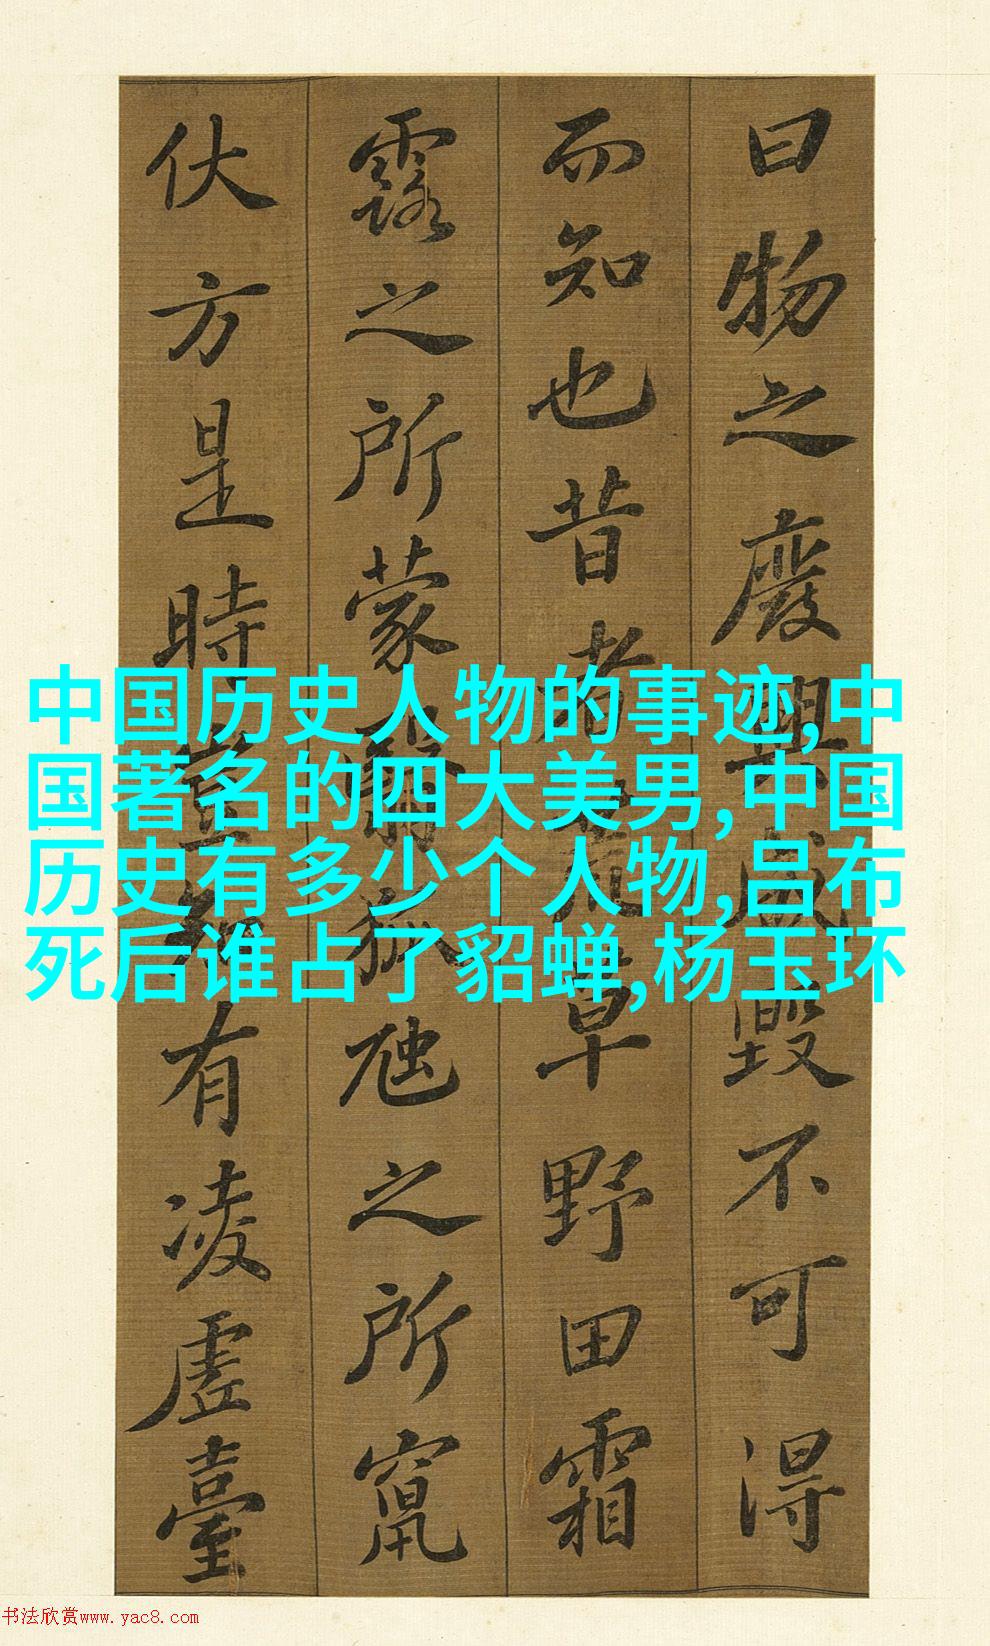 曰物之廢興成毀不可得
而知也昔者荒草野田霜
露之所蒙翳狐虺之所竄
伏方是時豈知有凌虛臺
中国历史人物的事迹,中
国著名的四大美男,中国
历史有多少个人物,吕布
死后谁占了貂蝉,杨玉环
书法欣赏www.yac8.com